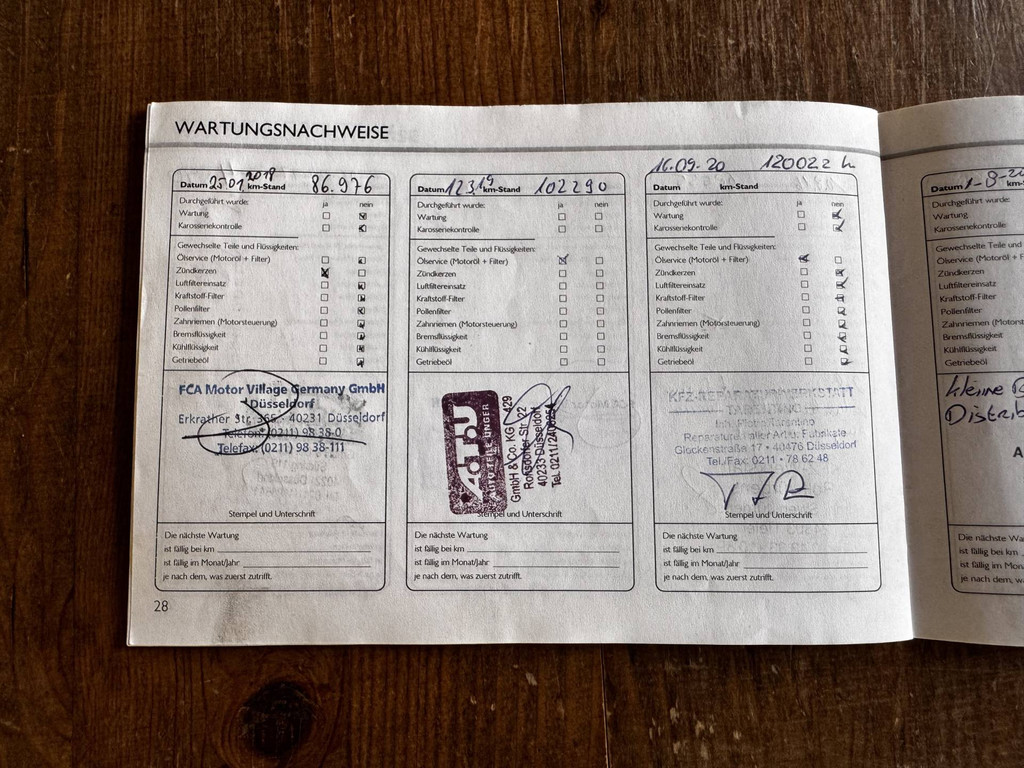 WARTUNGSNACHWEISE
Datum 25 01 2018 km-Stand 86.976
Durchgeführt wurde: ja nein
Wartung
Karosseriekontrolle
Gewechselte Teile und Flüssigkeiten:
Ölservice (Motoröl + Filter)
Zündkerzen
Luftfiltereinsatz
Kraftstoff-Filter
Pollenfilter
Zahnriemen (Motorsteuerung)
Bremsflüssigkeit
Kühlflüssigkeit
Getriebeöl
FCA Motor Village Germany GmbH
Düsseldorf
Erkrather Str. 365 · 40231 Düsseldorf
Telefon: (0211) 98 38-0
Telefax: (0211) 98 38-111
Stempel und Unterschrift
Die nächste Wartung
ist fällig bei km
ist fällig im Monat/Jahr
je nach dem, was zuerst zutrifft.
28
Datum 12 3 19 km-Stand 102290
Durchgeführt wurde: ja nein
Wartung
Karosseriekontrolle
Gewechselte Teile und Flüssigkeiten:
Ölservice (Motoröl + Filter)
Zündkerzen
Luftfiltereinsatz
Kraftstoff-Filter
Pollenfilter
Zahnriemen (Motorsteuerung)
Bremsflüssigkeit
Kühlflüssigkeit
Getriebeöl
AUTOTEILE UNGER
GmbH & Co. KG 429
40233 Düsseldorf
Stempel und Unterschrift
Die nächste Wartung
ist fällig bei km
ist fällig im Monat/Jahr
je nach dem, was zuerst zutrifft.
16.09.20 120022 k
Datum km-Stand
Durchgeführt wurde: ja nein
Wartung
Karosseriekontrolle
Gewechselte Teile und Flüssigkeiten:
Ölservice (Motoröl + Filter)
Zündkerzen
Luftfiltereinsatz
Kraftstoff-Filter
Pollenfilter
Zahnriemen (Motorsteuerung)
Bremsflüssigkeit
Kühlflüssigkeit
Getriebeöl
Glockenstraße 17 · 40476 Düsseldorf
Tel./Fax: 0211 · 78 62 48
Stempel und Unterschrift
Die nächste Wartung
ist fällig bei km
ist fällig im Monat/Jahr
je nach dem, was zuerst zutrifft.
Datum
Durchgeführt wurde:
Wartung
Karosseriekontrolle
Gewechselte Teile und
Ölservice (Motoröl + F
Zündkerzen
Luftfiltereinsatz
Kraftstoff-Filter
Pollenfilter
Zahnriemen (Motorst
Bremsflüssigkeit
Kühlflüssigkeit
Getriebeöl
kleine
Distrib
Die nächste Wa
ist fällig bei km
ist fällig im Mon
je nach dem, w